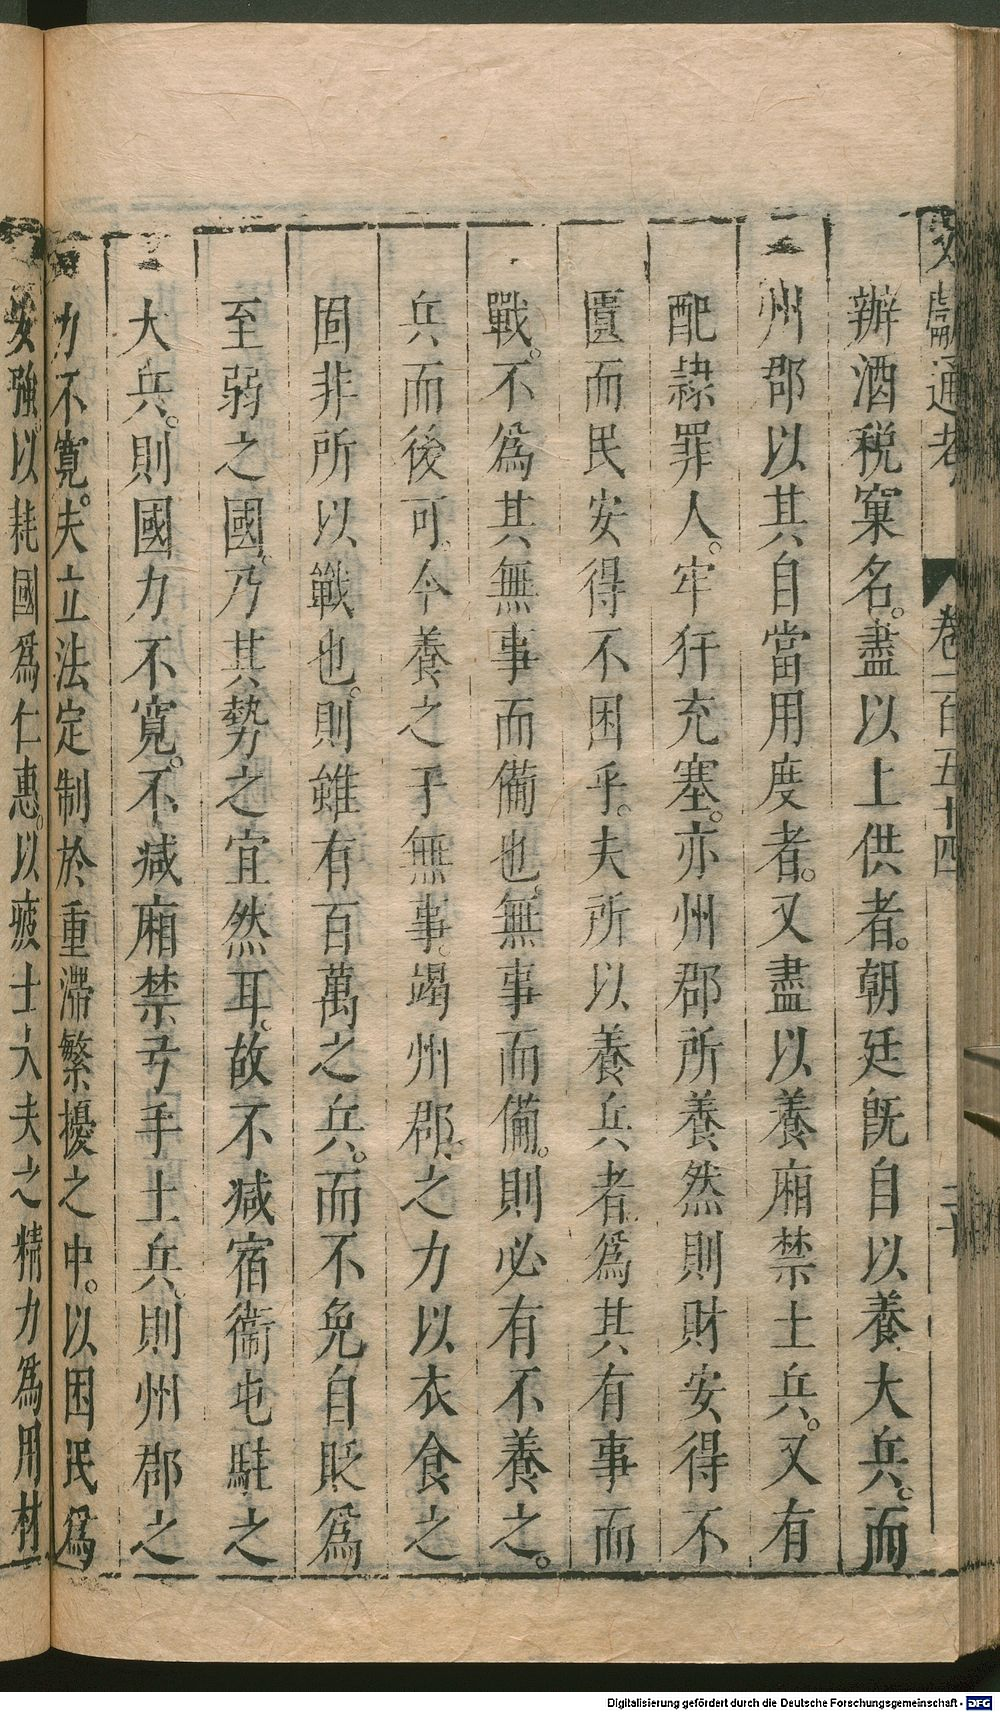 文獻通考 卷一百五十四 二十
辦酒税窠名。盡以上供者。朝廷旣自以養大兵。而
州郡以其自當用度者。又盡以養廂禁土兵。又有
配隷罪人。牢犴充塞。亦州郡所養然則財安得不
匱而民安得不困乎。夫所以養兵者爲其有事而
戰。不爲其無事而備也。無事而備。則必有不養之。
兵而後可。今養之于無事。竭州郡之力以衣食之
固非所以戰也。則雖有百萬之兵。而不免自貶爲
至弱之國。乃其勢之宜然耳。故不减宿衞屯駐之
大兵。則國力不寛。不减廂禁弓手土兵。則州郡之
力不寛。夫立法定制於重滯繁擾之中。以困民爲
安強。以耗國爲仁惠。以疲士大夫之精力爲用材
Digitalisierung gefördert durch die Deutsche Forschungsgemeinschaft - DFG